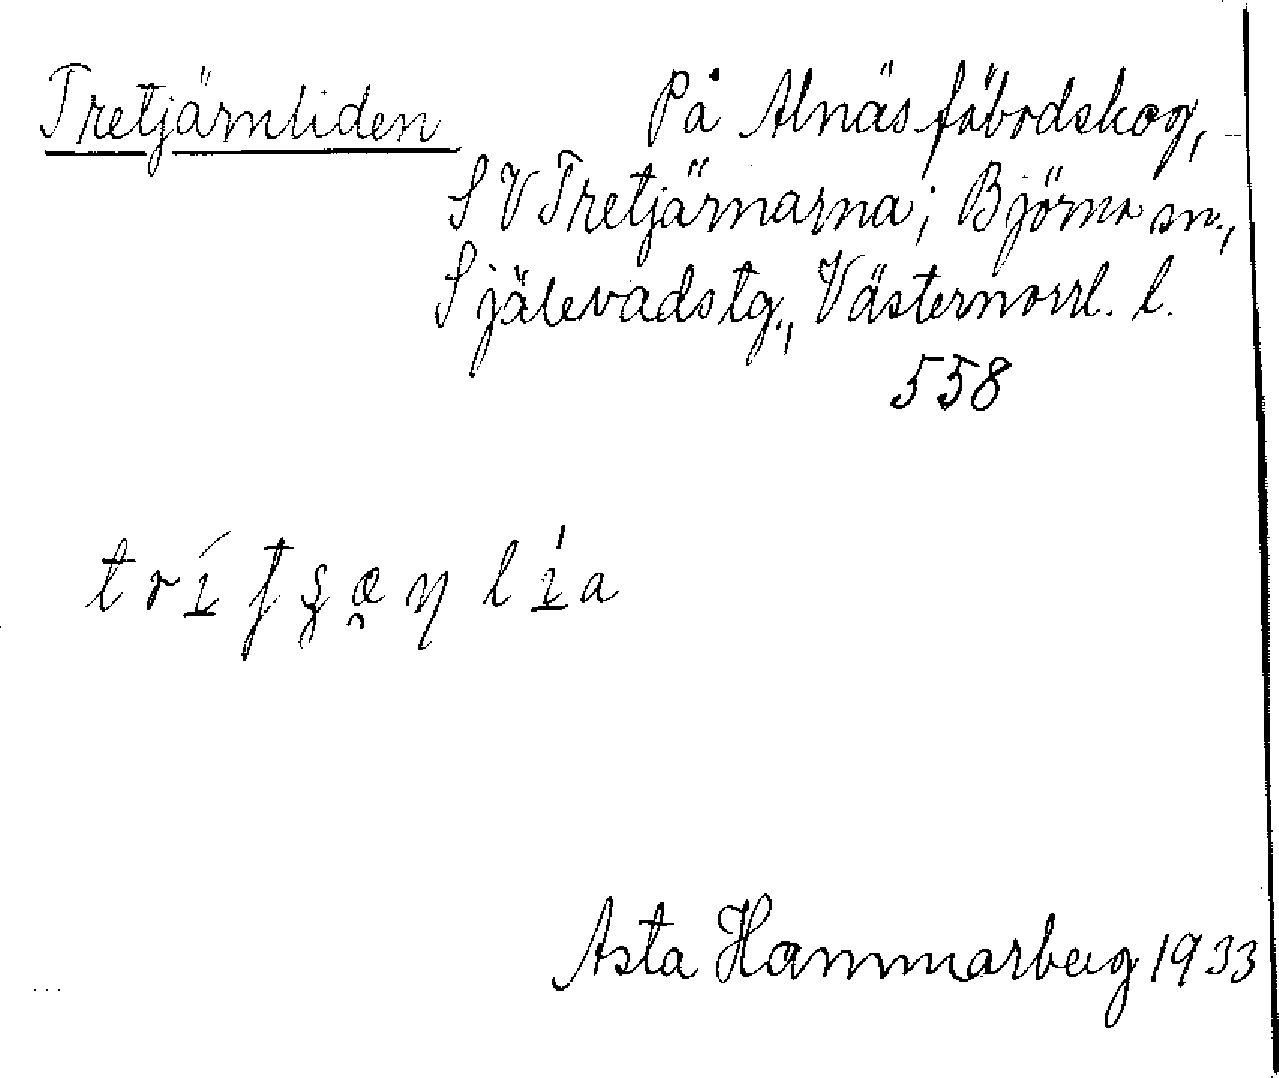 Tretjärnliden På Alnäs fäbodskog,
SV Tretjärnarna; Björna sn.,
Själevads tg., Västernorrl. l.
558
Asta Hammarberg 1933